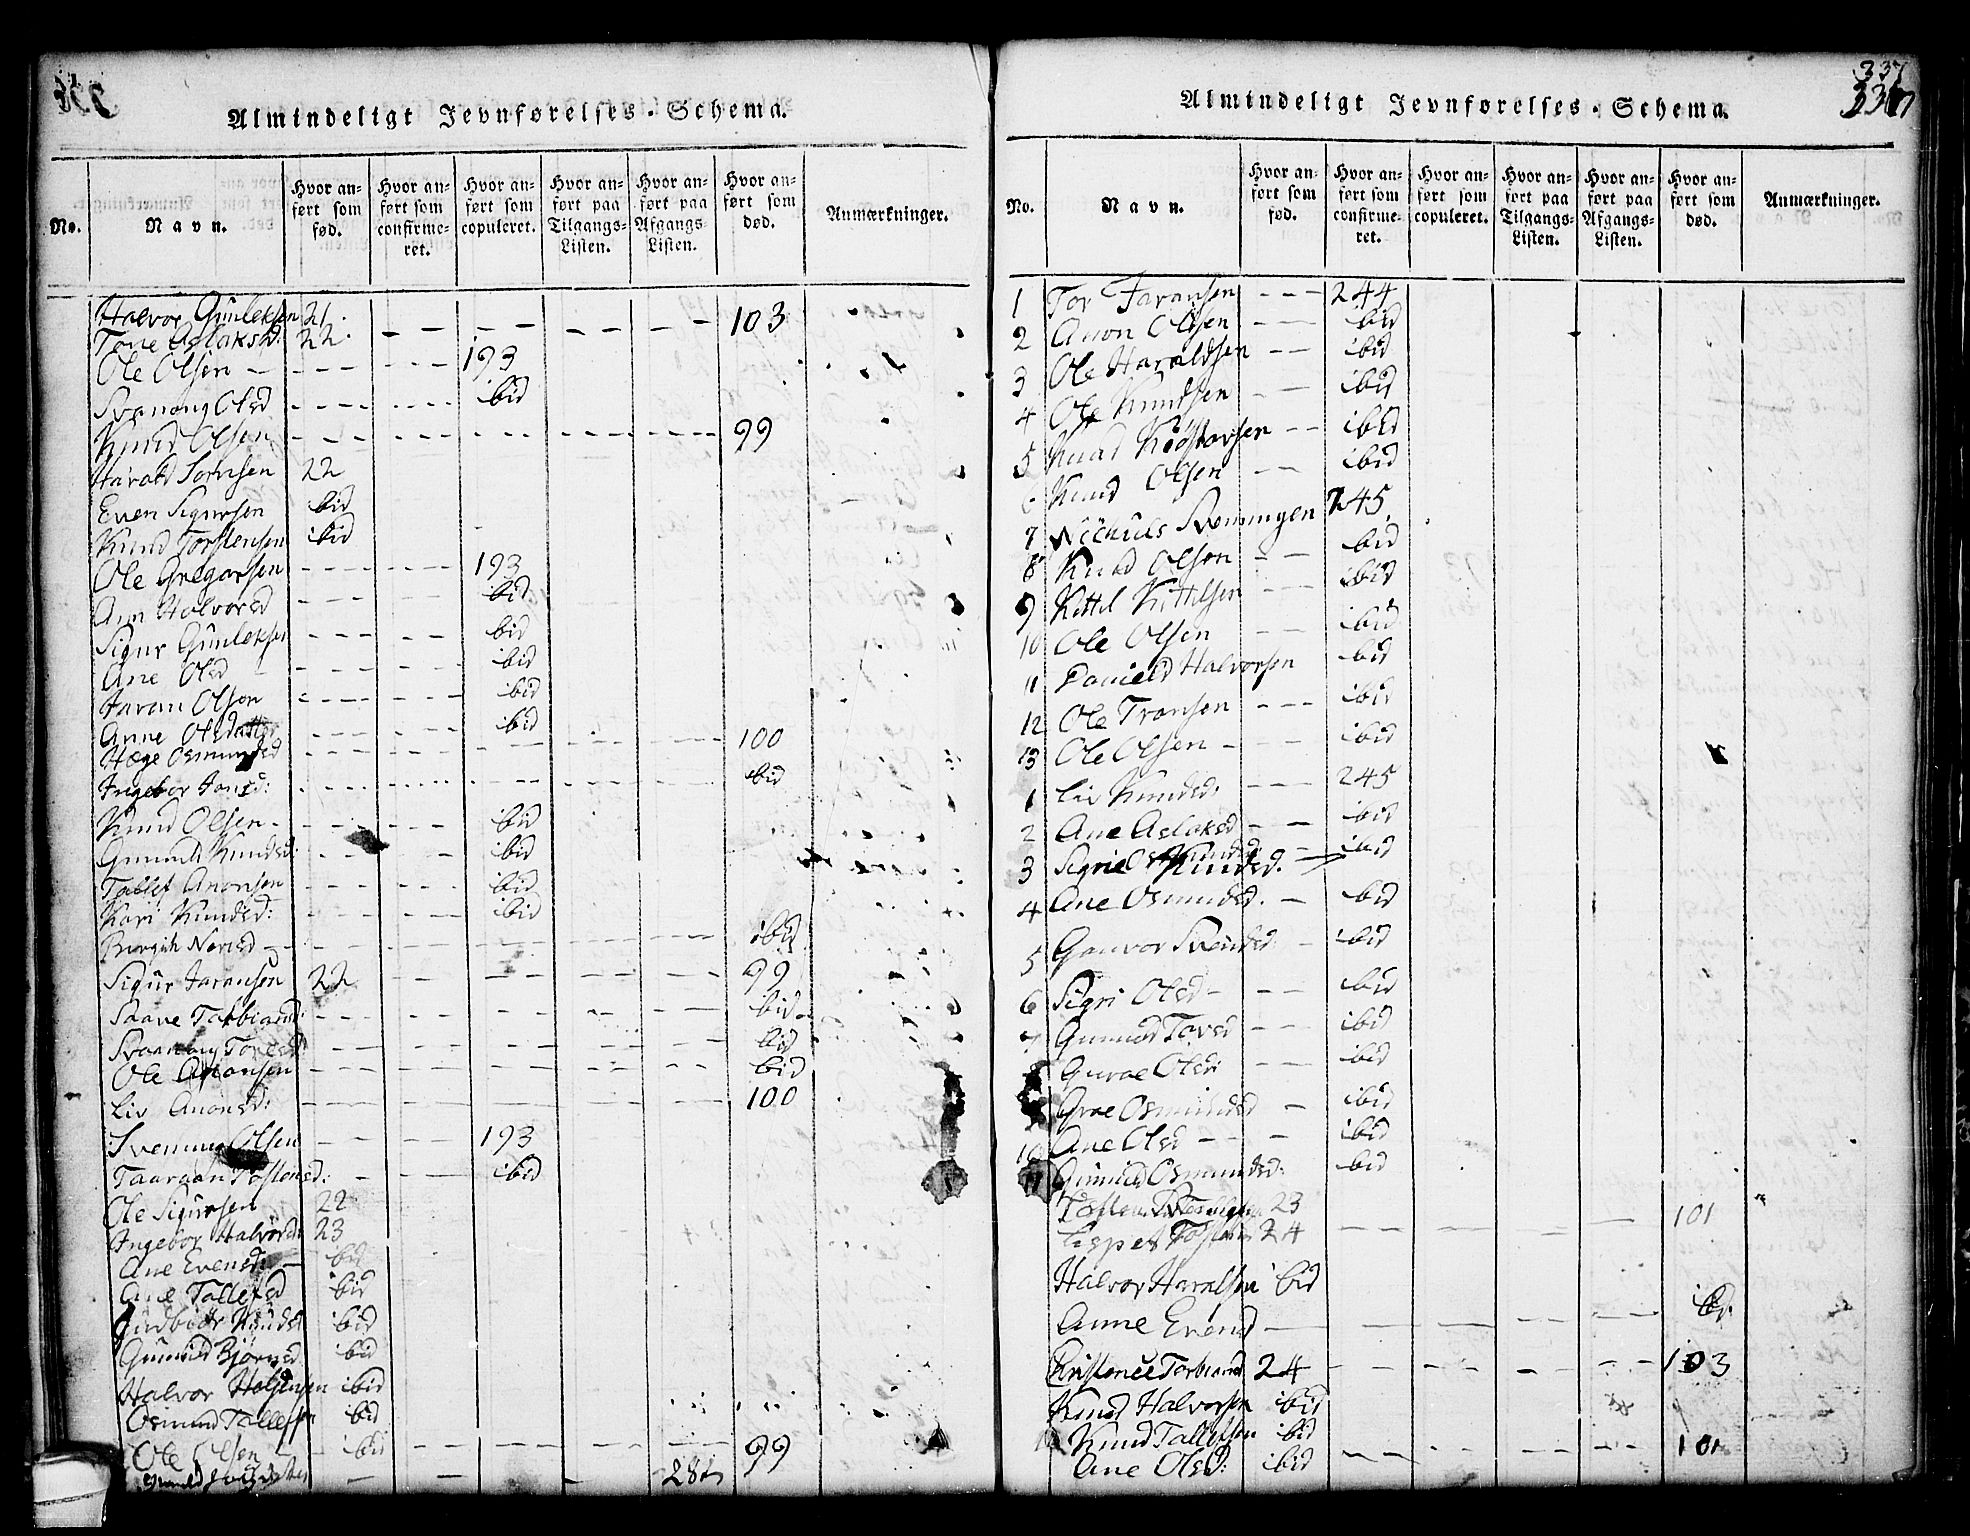 Almindeligt Jevnførelses-Schema.
No. Navn. Hvor anført som fød. Hvor anført som confirmeret. Hvor anført som copuleret. Hvor anført paa Tilgangs-Listen. Hvor anført paa Afgangs-Listen. Hvor anført som død. Anmærkninger.
Halvor Gunleksen 21.
Tone Aslaksd: 22. - - - - - 103
Ole Olsen - - - 193
Svanaug Olsd - - - ibid
Knud Olsen - - - - - 99
Harald Sørnsen 22
Even Sigursen ibid
Knud Torstensen ibid
Ole Gregarsen - - - 193
Ann Halvorsd - - - ibid
Sigur Gunleksen - - - ibid
Ane Olsd - - - ibid
Jaran Olsen - - - ibid
Anne Olsdatter - - - ibid
Hæge Osmundsd - - - - - 100
Ingebor Jonsd: - - - - - ibid
Knud Olsen - - - ibid
Gunuld Knudsd: - - - ibid
Tallef Anonsen - - - ibid
Kari Knudsd: - - - ibid
Birgith Norisd - - - - - ibid
Sigur Jaransen 22 - - - - - 99
Saave Torbiørnsd: - - - - - ibid
Svaanaug - - - - - ibid
Ole Anonsen - - - - - ibid
Liv Anonsd: - - - - - 100
Svenning Olsen - - - 193
Taaraan Tostensd: - - ibid
Ole Sigursen 22
Ingebor Halvorsd: 23
Ane Evensd: ibid
Ane Tallefsd ibid
Gudbiør Knudsd ibid
Gunuld Bjørnsd ibid
Halvor Halvorsen ibid
Osmund Tallefsen ibid
Ole Olsen - ibid - - - - - 99
Almindeligt Jevnførelses-Schema.
337
337
No. Navn. Hvor anført som fød. Hvor anført som confirmeret. Hvor anført som copuleret. Hvor anført paa Tilgangs-Listen. Hvor anført paa Afgangs-Listen. Hvor anført som død. Anmærkninger.
1 Tor Jaransen - - - 244
2 Anon Olsen - - ibid
3 Ole Haraldsen - - ibid
4 Ole Knudsen - - ibid
5 Knud - - ibid
6 Knud Olsen - - ibid
7 Svenningen 245
8 Knud Olsen - - ibid
9 Kittil Kittilsen - - ibid
10 Ole Olsen - - ibid
11 Danield Halvorsen ibid
12 Ole Transen - - - ibid
13 Ole Olsen - - - ibid
1 Liv Knudsd: 245
2 Ane Aslaksd - - ibid
3 Sigrie Knudsd. - ibid
4 Ane Osmundsd. - ibid
5 Gonvor Svensd: - ibid
6 Sigri Olsd - - - ibid
7 Gunuld Tovsd - - - ibid
Guroe Olsd: - - ibid
Groe Osmundsd - ibid
10 Ane Olsd - - - ibid
11 Gunuld Osmundsd: ibid
23
Lispet 24 - - - - - 101
Halvor Haralsen ibid
Anne Evensd - - - - - ibid:
Kristence Torbiørnsd 24 - - - - - 103
Knud Halvorsen ibid
Knud Tallefsen ibid
Ane Olsd: ibid - - - - - 101